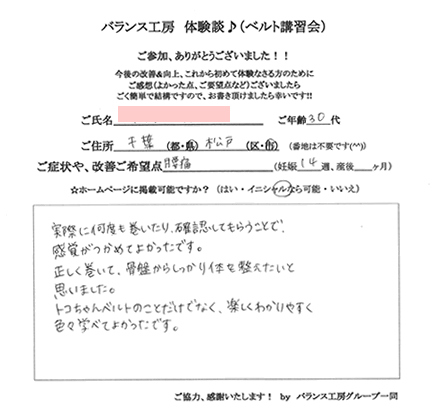 バランス工房　体験談♪（ベルト講習会）
ご参加、ありがとうございました！！
今後の改善&向上、これから初めて体験なさる方のために
ご感想（よかった点、ご要望点など）ございましたら
ごく簡単で結構ですので、お書き頂けましたら幸いです!!
ご氏名　ご年齢 30 代
ご住所　千葉（都・県）松戸（区・市）（番地は不要です(^^)）
ご症状や、改善ご希望点 腰痛（妊娠 14 週、産後　ヶ月）
☆ホームページに掲載可能ですか？（はい・イニシャルなら可能・いいえ）
実際に何度も巻いたり、確認してもらうことで、
感覚がつかめてよかったです。
正しく巻いて、骨盤からしっかり体を整えたいと
思いました。
トコちゃんベルトのことだけでなく、楽しくわかりやすく
色々学べてよかったです。
ご協力、感謝いたします！ by バランス工房グループ一同